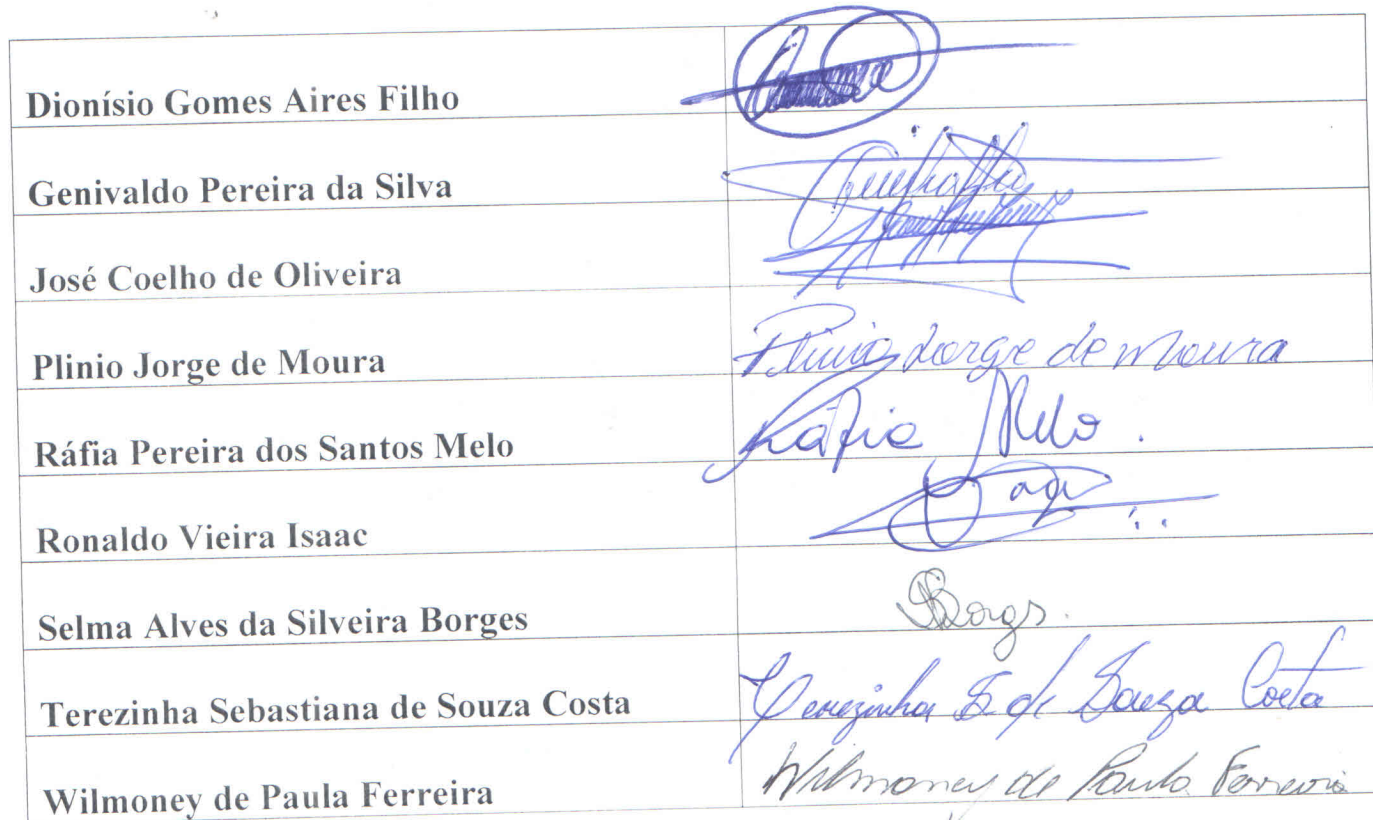 Dionísio Gomes Aires Filho
Genivaldo Pereira da Silva
José Coelho de Oliveira
Plinio Jorge de Moura Plinio Jorge de Moura
Ráfia Pereira dos Santos Melo Ráfia Melo.
Ronaldo Vieira Isaac
Selma Alves da Silveira Borges SBorgs.
Terezinha Sebastiana de Souza Costa Terezinha S. de Souza Costa
Wilmoney de Paula Ferreira Wilmoney de Paula Ferreira